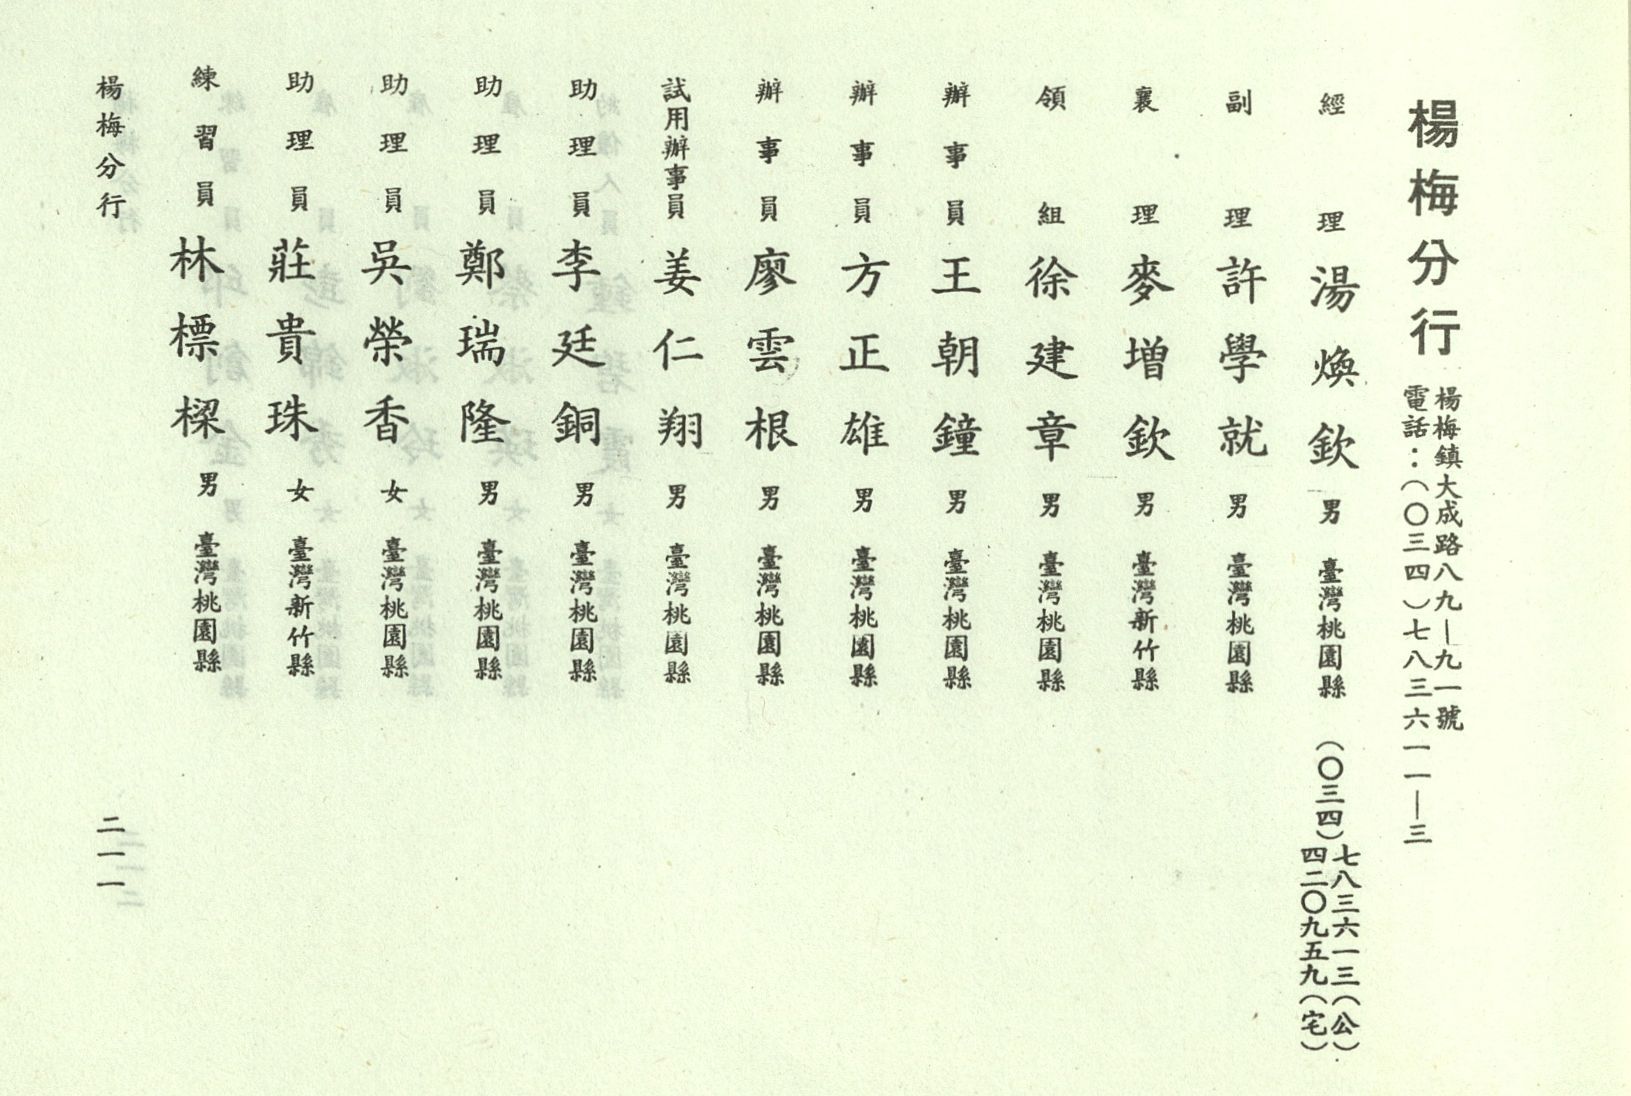 楊梅分行
楊梅鎮大成路八九—九一號
電話：(〇三四)七八三六一一—三
經理 湯煥欽 男 臺灣桃園縣 (〇三四)七八三六一三(公)
四二〇九五九(宅)
副理 許學就 男 臺灣桃園縣
襄理 麥增欽 男 臺灣新竹縣
領組 徐建章 男 臺灣桃園縣
辦事員 王朝鐘 男 臺灣桃園縣
辦事員 方正雄 男 臺灣桃園縣
辦事員 廖雲根 男 臺灣桃園縣
試用辦事員 姜仁翔 男 臺灣桃園縣
助理員 李廷銅 男 臺灣桃園縣
助理員 鄭瑞隆 男 臺灣桃園縣
助理員 吳榮香 女 臺灣桃園縣
助理員 莊貴珠 女 臺灣新竹縣
練習員 林標樑 男 臺灣桃園縣
楊梅分行
二一一